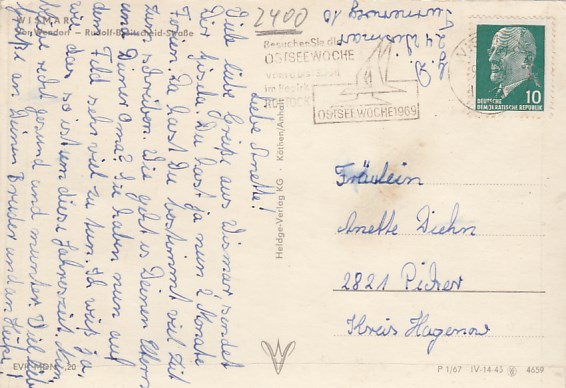 WISMAR
Wendorf - Rudolf-Breitscheid-Straße
2400
Besuchen Sie die
OSTSEEWOCHE
im Bezirk
ROSTOCK
OSTSEEWOCHE 1969
10
DEUTSCHE
DEMOKRATISCHE REPUBLIK
24 Wismar
Liebe Anette!
Viele liebe Grüße aus Wismar sendet
Dir Gisela. Du hast ja nun 2 Monate
Ferien, da hast Du bestimmt viel Zeit
zum schreiben. Wie geht es Deinen Eltern
und Deiner Oma? Sie haben nun auf
dem Feld sehr viel zu tun. Ich weiß ja,
wie das so ist um diese Jahreszeit.
recht gesund und munter. Viele liebe
Grüße an Deinen Bruder und an
Heldge-Verlag KG · Köthen/Anhalt
Fräulein
Anette Diehn
2821 Picher
Kreis Hagenow
EVP MDN -,20
P 1/67 IV-14-45 4659